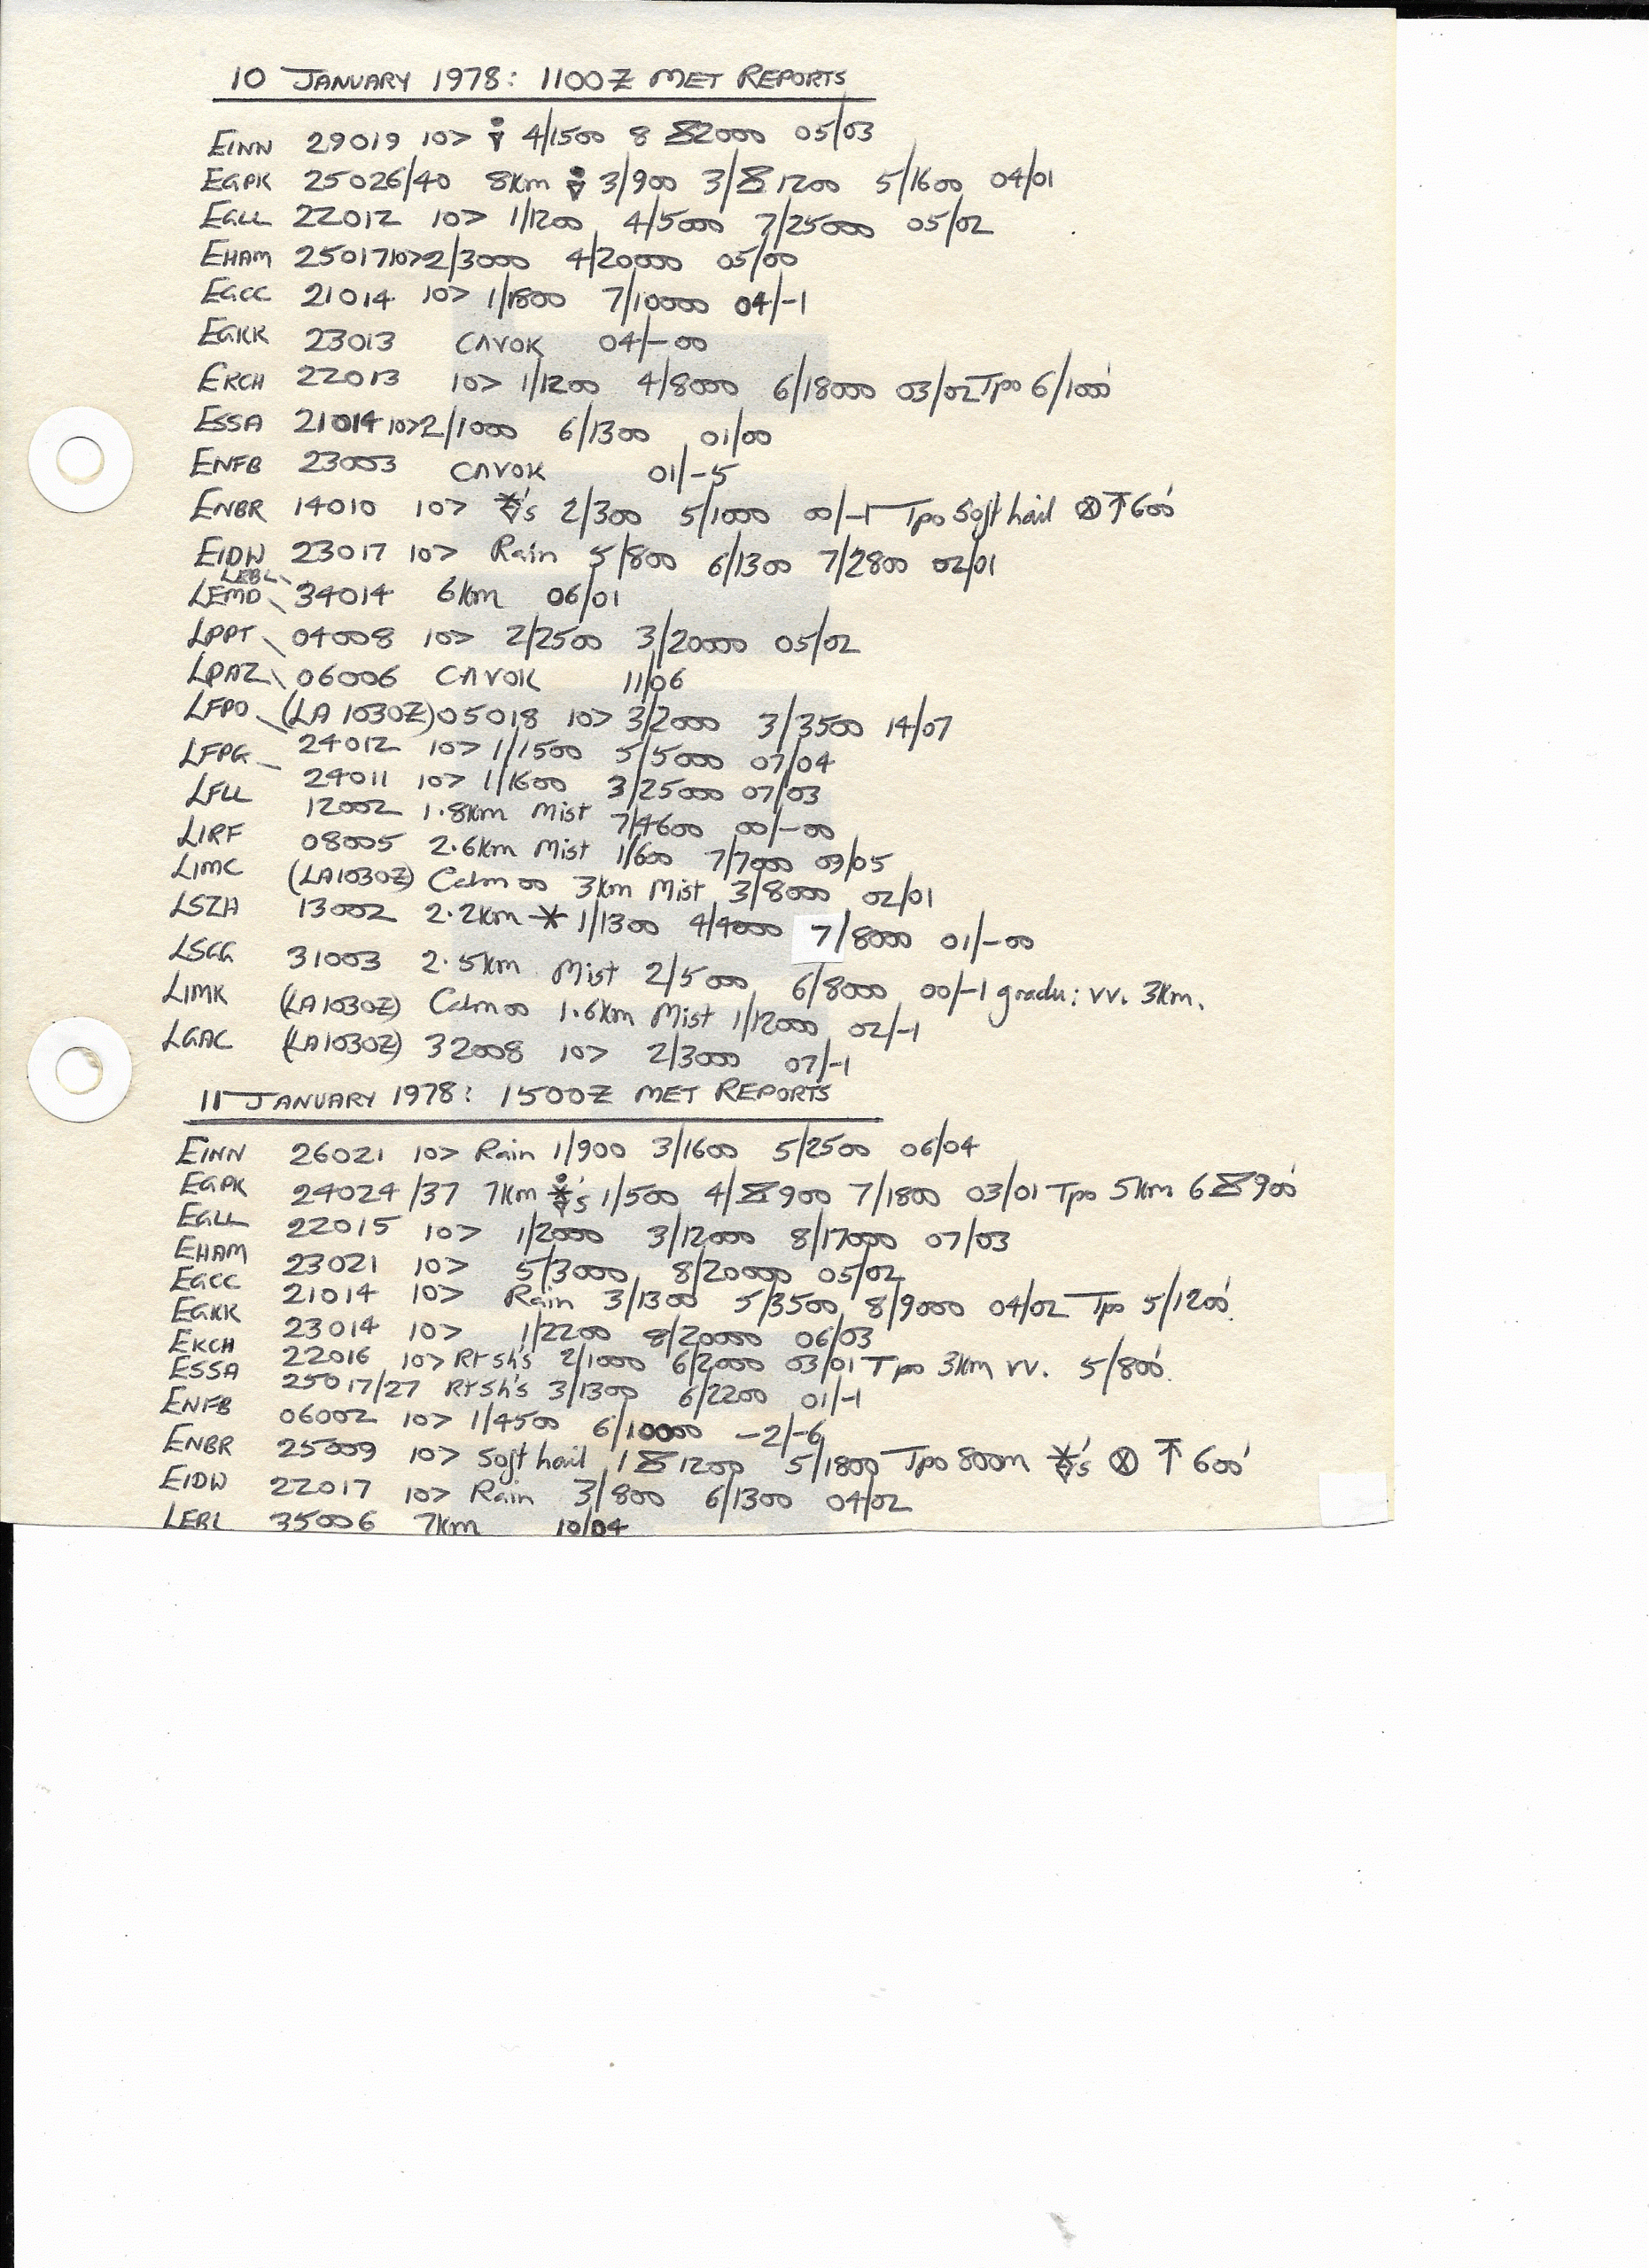 10 JANUARY 1978: 1100Z MET REPORTS
EINN 29019 10> 4/1500 8 2000 05/03
EGPK 25026/40 8km 3/900 3/ 1200 5/1600 04/01
EGLL 22012 10> 1/1200 4/5000 7/25000 05/02
EHAM 25017 10> 2/3000 4/20000 05/00
EGCC 21014 10> 1/1800 7/10000 04/-1
EGKK 23013 CAVOK 04/-00
EKCH 22013 10> 1/1200 4/8000 6/18000 03/02 Tpo 6/1000'
ESSA 21014 10> 2/1000 6/1300 01/00
ENFB 23003 CAVOK 01/-5
ENBR 14010 10> 's 2/300 5/1000 00/-1 Tpo Soft hail ⊗ ↑ 600'
EIDW 23017 10> Rain 5/800 6/1300 7/2800 02/01
LEBL
LEMD 34014 6km 06/01
LPPT 04008 10> 2/2500 3/20000 05/02
LPAZ 06006 CAVOK 11/06
LFPO (LA 1030Z) 05018 10> 3/2000 3/3500 14/07
LFPG 24012 10> 1/1500 5/5000 07/04
24011 10> 1/1600 3/25000 07/03
LFLL 12002 1.8km Mist 7/4600 00/-00
LIRF 08005 2.6km Mist 1/600 7/7000 09/05
LIMC (LA1030Z) Calm 00 3km Mist 3/8000 02/01
LSZH 13002 2.2km * 1/1300 4/4000 7/8000 01/-00
LSGG 31003 2.5km Mist 2/5000 6/8000 00/-1 gradu: vv. 3km.
LIMK (LA1030Z) Calm 00 1.6km Mist 1/12000 02/-1
LGAC (LA1030Z) 32008 10> 2/3000 07/-1
11 JANUARY 1978: 1500Z MET REPORTS
EINN 26021 10> Rain 1/900 3/1600 5/2500 06/04
EGPK 24024/37 7km 's 1/500 4/ 900 7/1800 03/01 Tpo 5km 6 900'
EGLL 22015 10> 1/2000 3/12000 8/17000 07/03
EHAM 23021 10> 5/3000 8/20000 05/02
EGCC 21014 10> Rain 3/1300 5/3500 8/9000 04/02 Tpo 5/1200'.
EGKK 23014 10> 1/2200 8/20000 06/03
EKCH 22016 10> Rt Sh's 2/1000 6/2000 03/01 Tpo 3km vv. 5/800'.
ESSA 25017/27 Rt Sh's 3/1300 6/2200 01/-1
ENFB 06002 10> 1/4500 6/10000 -2/-6
ENBR 25009 10> Soft hail 1 1200 5/1800 Tpo 800m 's ⊗ ↑ 600'
EIDW 22017 10> Rain 3/800 6/1300 04/02
LEBL 35006 7km 10/04